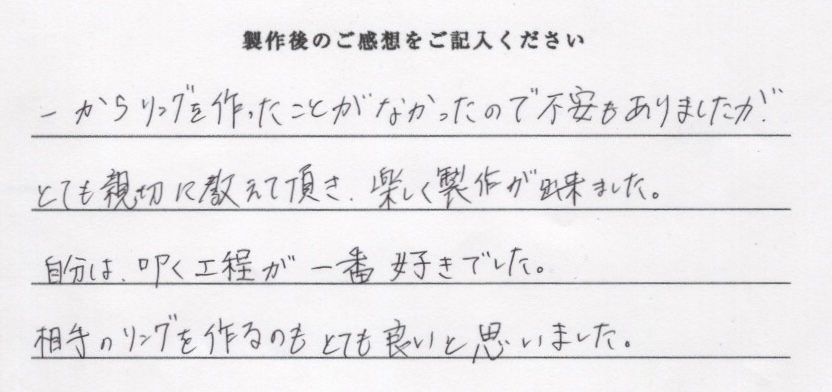 製作後のご感想をご記入ください
一からリングを作ったことがなかったので不安もありましたが、
とても親切に教えて頂き、楽しく製作が出来ました。
自分は、叩く工程が一番好きでした。
相手のリングを作るのもとても良いと思いました。